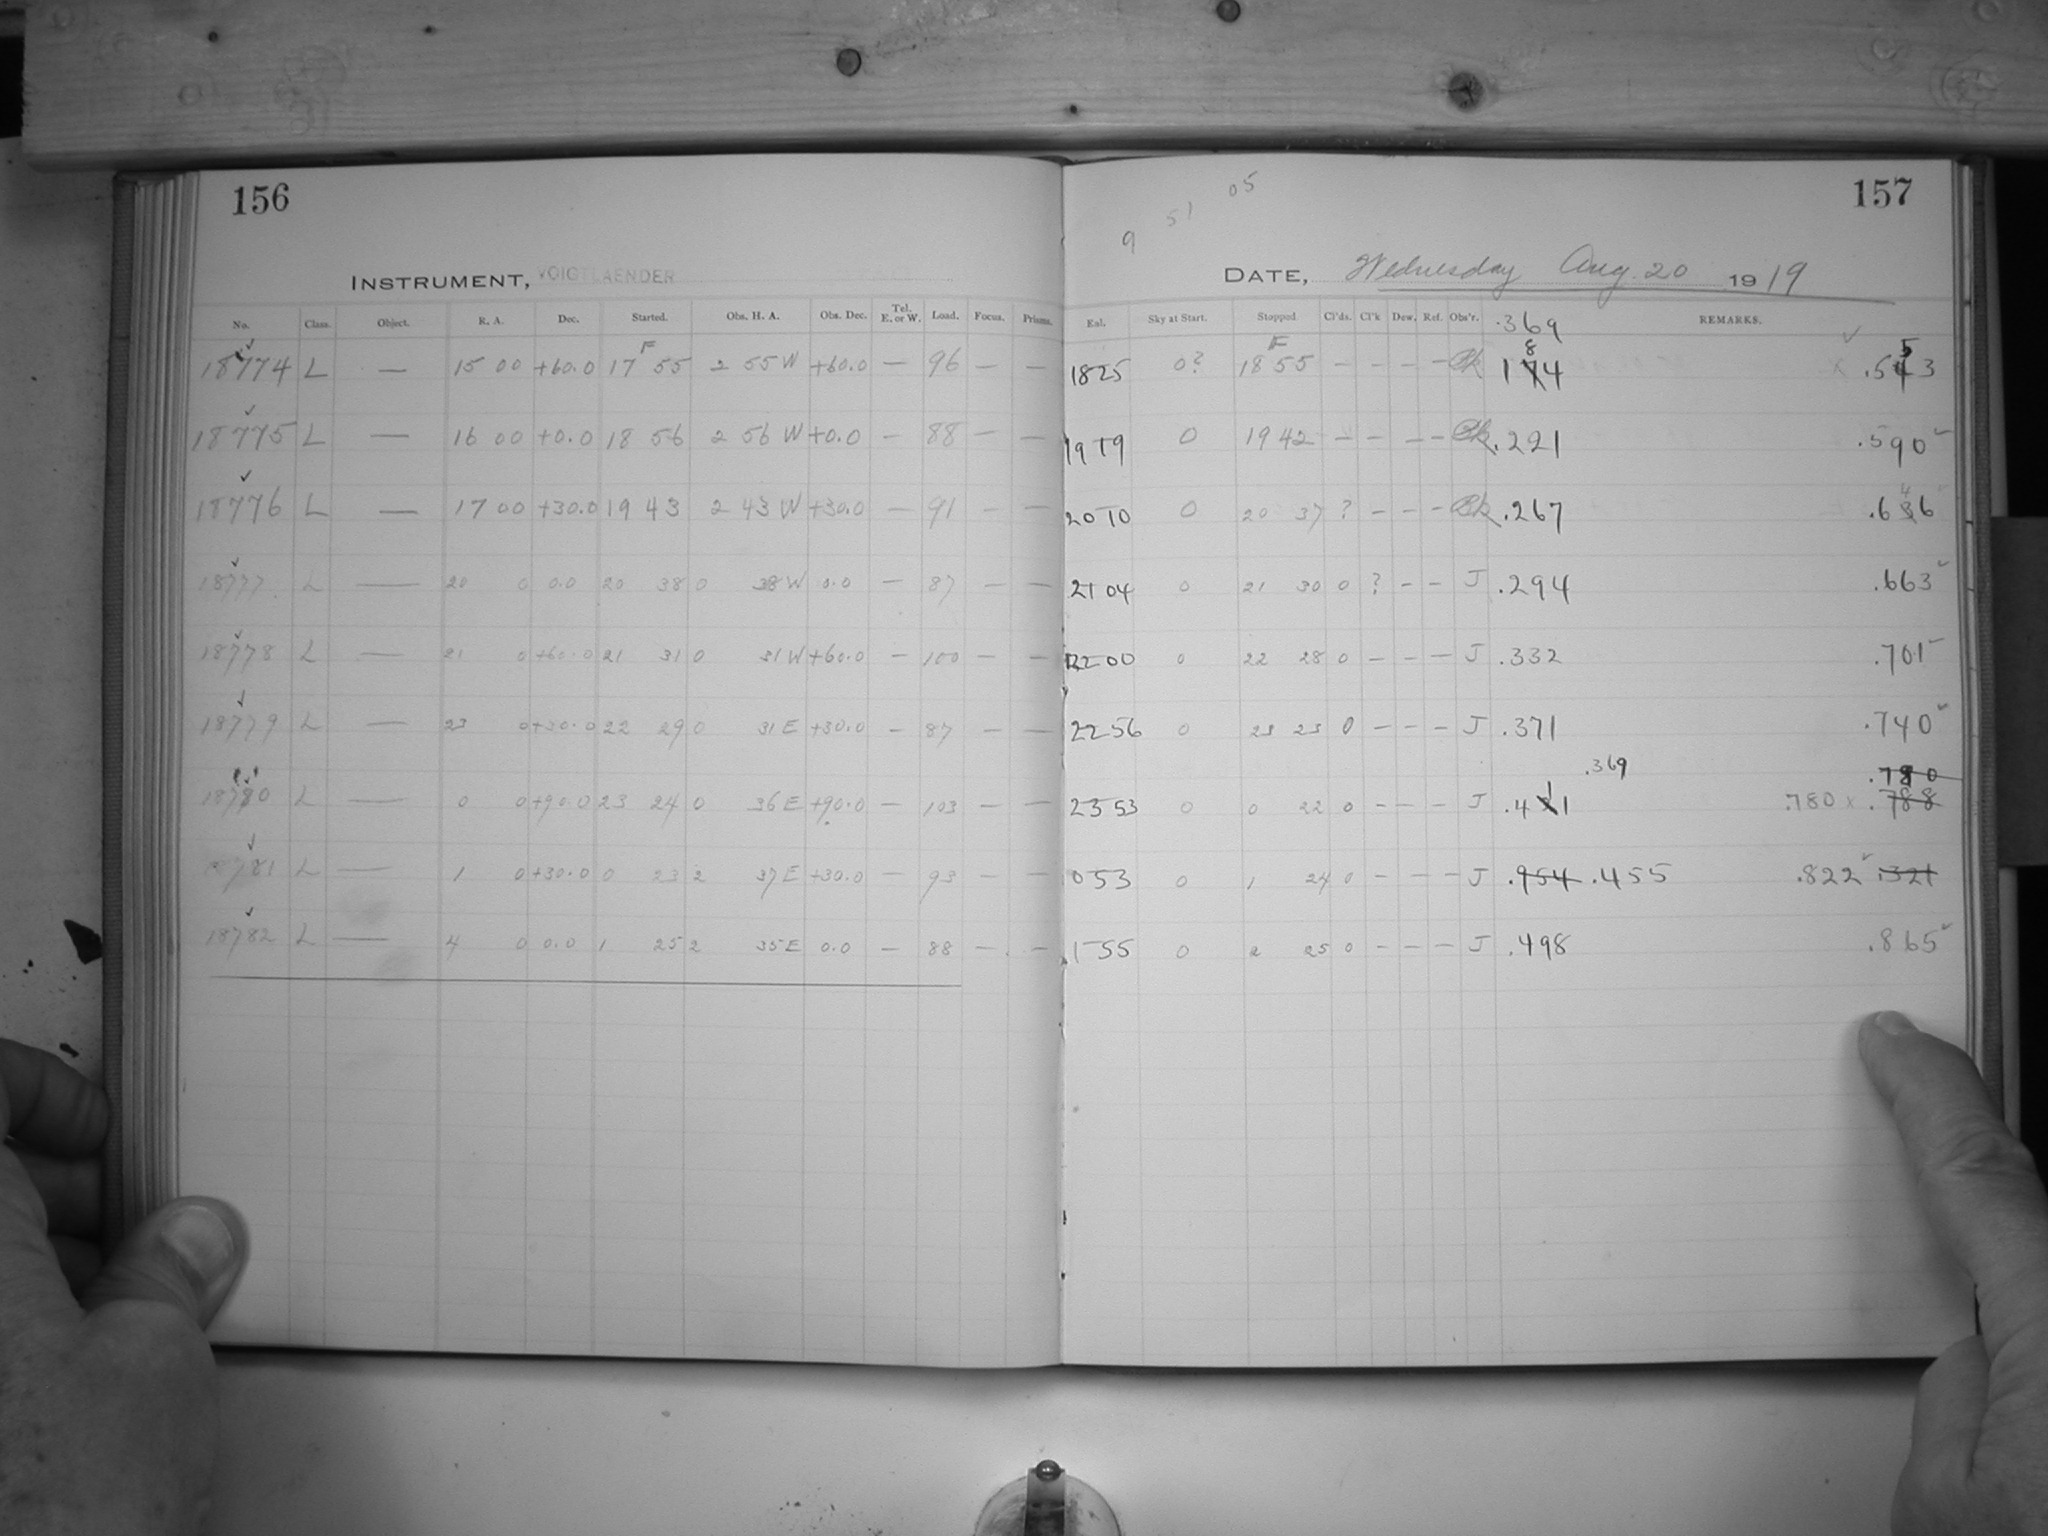 156
157
05
51
9
INSTRUMENT, VOIGTLAENDER
DATE, Wednesday Aug. 20 1919
No. Class. Object. R. A. Dec. Started. Obs. H. A. Obs. Dec. Tel. E. or W. Load. Focus. Prisms. Eal. Sky at Start. Stopped Cl'ds. Cl'k Dew. Ref. Obs'r. .369 REMARKS.
18774 L — 15 00 +60.0 17 F 55 2 55 W +60.0 — 96 — — 1825 0? 18 F 55 — — — — 184 .553
18775 L — 16 00 +0.0 18 56 2 56 W +0.0 — 88 — — 1919 0 19 42 — — — — .221 .590
18776 L — 17 00 +30.0 19 43 2 43 W +30.0 — 91 — — 2010 0 20 37 ? — — — .267 .646
18777 L — 20 0 0.0 20 38 0 38 W 0.0 — 87 — — 2104 0 21 30 0 ? — — J .294 .663
18778 L — 21 0 +60.0 21 31 0 31 W +60.0 — 100 — — 2200 0 22 28 0 — — — J .332 .701
18779 L — 23 0 +30.0 22 29 0 31 E +30.0 — 87 — — 2256 0 23 23 0 — — — J .371 .740
.369 .780
18780 L — 0 0 +90.0 23 24 0 36 E +90.0 — 103 — — 2353 0 0 22 0 — — — J .411 .780 x .788
18781 L — 1 0 +30.0 0 23 2 37 E +30.0 — 93 — — 053 0 1 24 0 — — — J .954 .455 .822 .321
18782 L — 4 0 0.0 1 25 2 35 E 0.0 — 88 — — 155 0 2 25 0 — — — J .498 .865